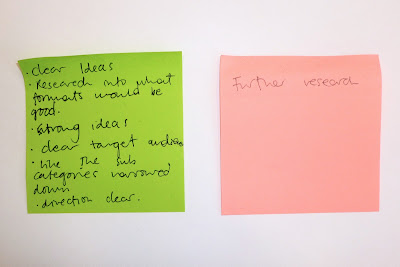 · clear Ideas
· Research into what
formats would be
good.
· strong ideas
· clear target audience
· like the sub
categories narrowed
down
· direction clear.
Further research